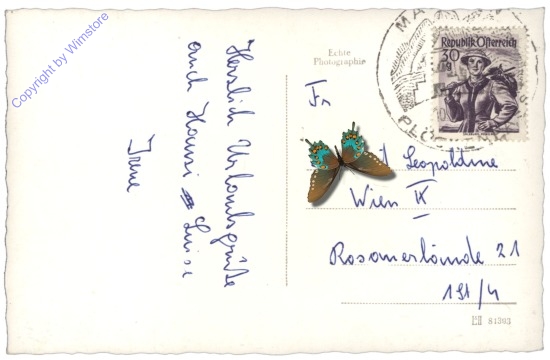 Copyright by Wimstore
Herrlich Urlaubsgrüße
auch Hansi Luise
Irene
Echte
Photographie
Fr
Leopoldine
Wien IX
Rosauerlände 21
1St/4
Republik Österreich
30
MA
PLÖCKEN
84303